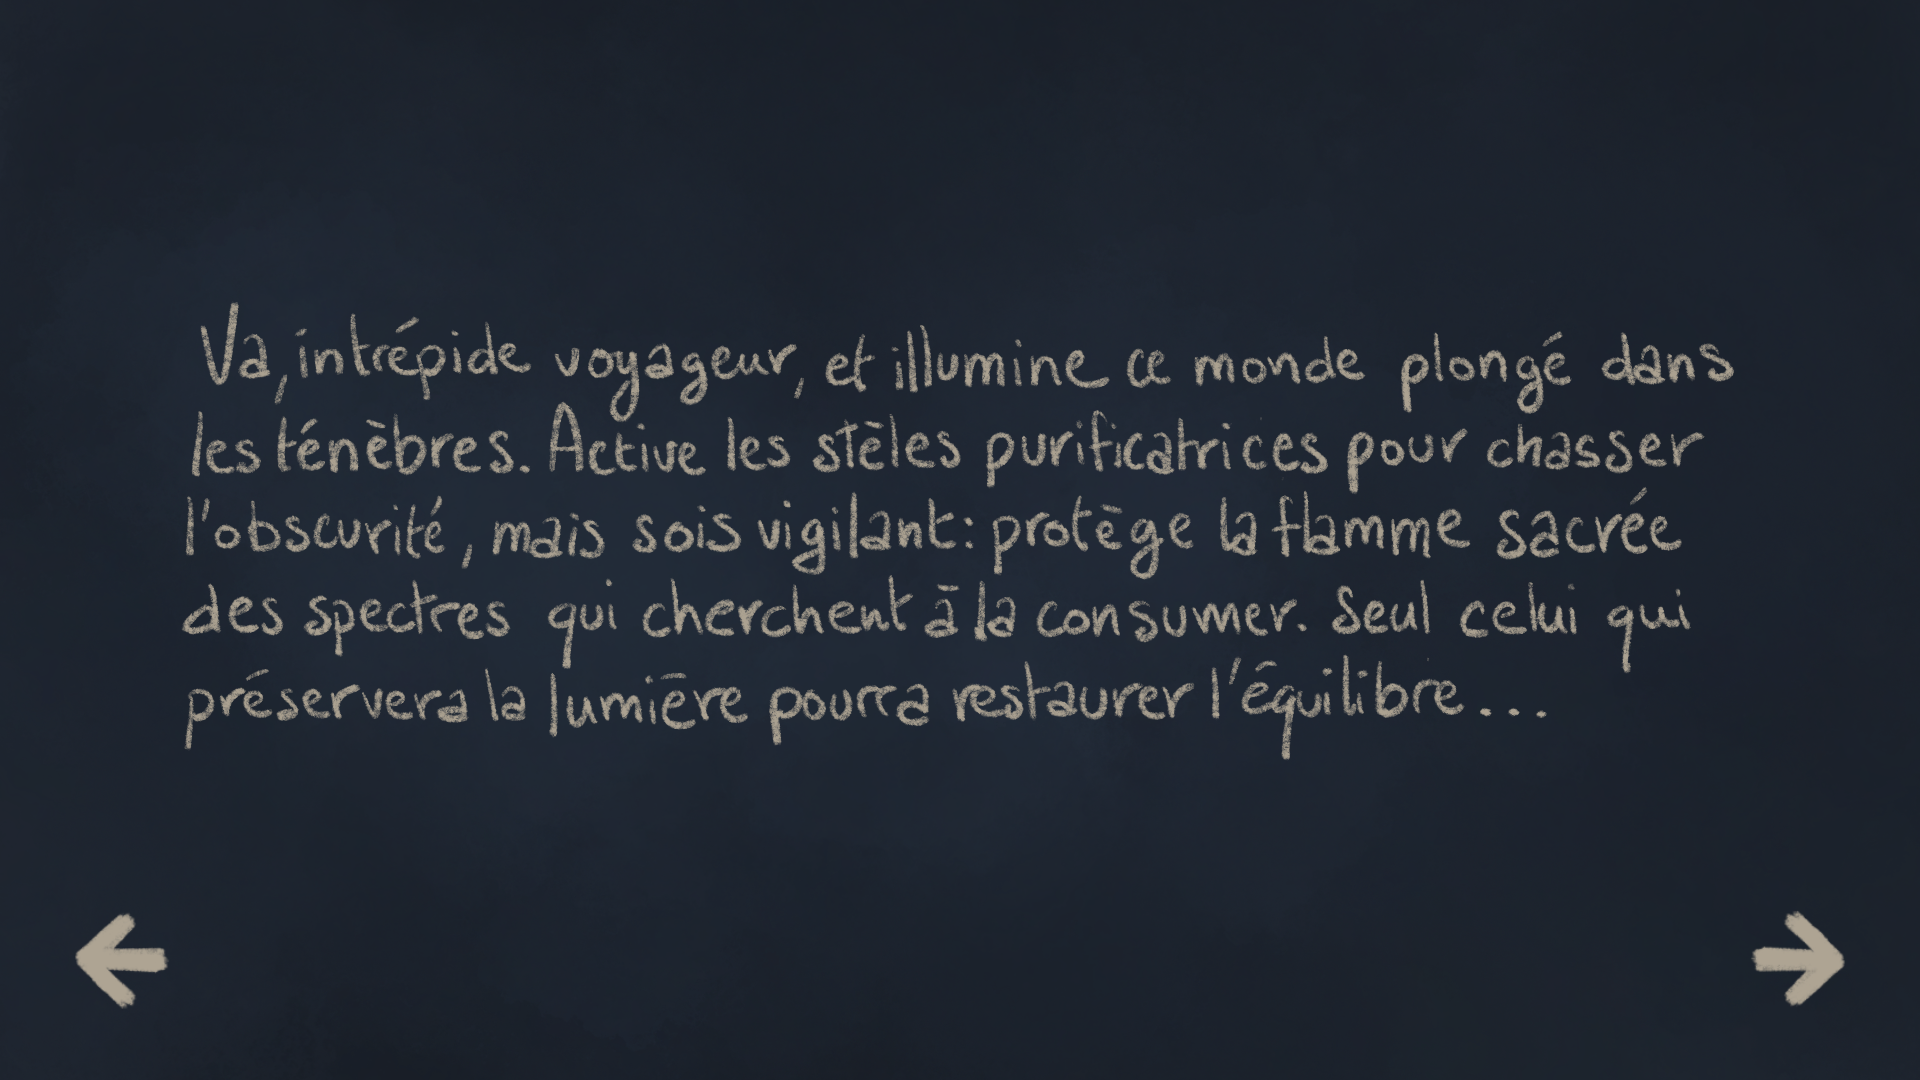 Va, intrépide voyageur, et illumine ce monde plongé dans
les ténèbres. Active les stèles purificatrices pour chasser
l'obscurité, mais sois vigilant: protège la flamme sacrée
des spectres qui cherchent à la consumer. Seul celui qui
préservera la lumière pourra restaurer l'équilibre...